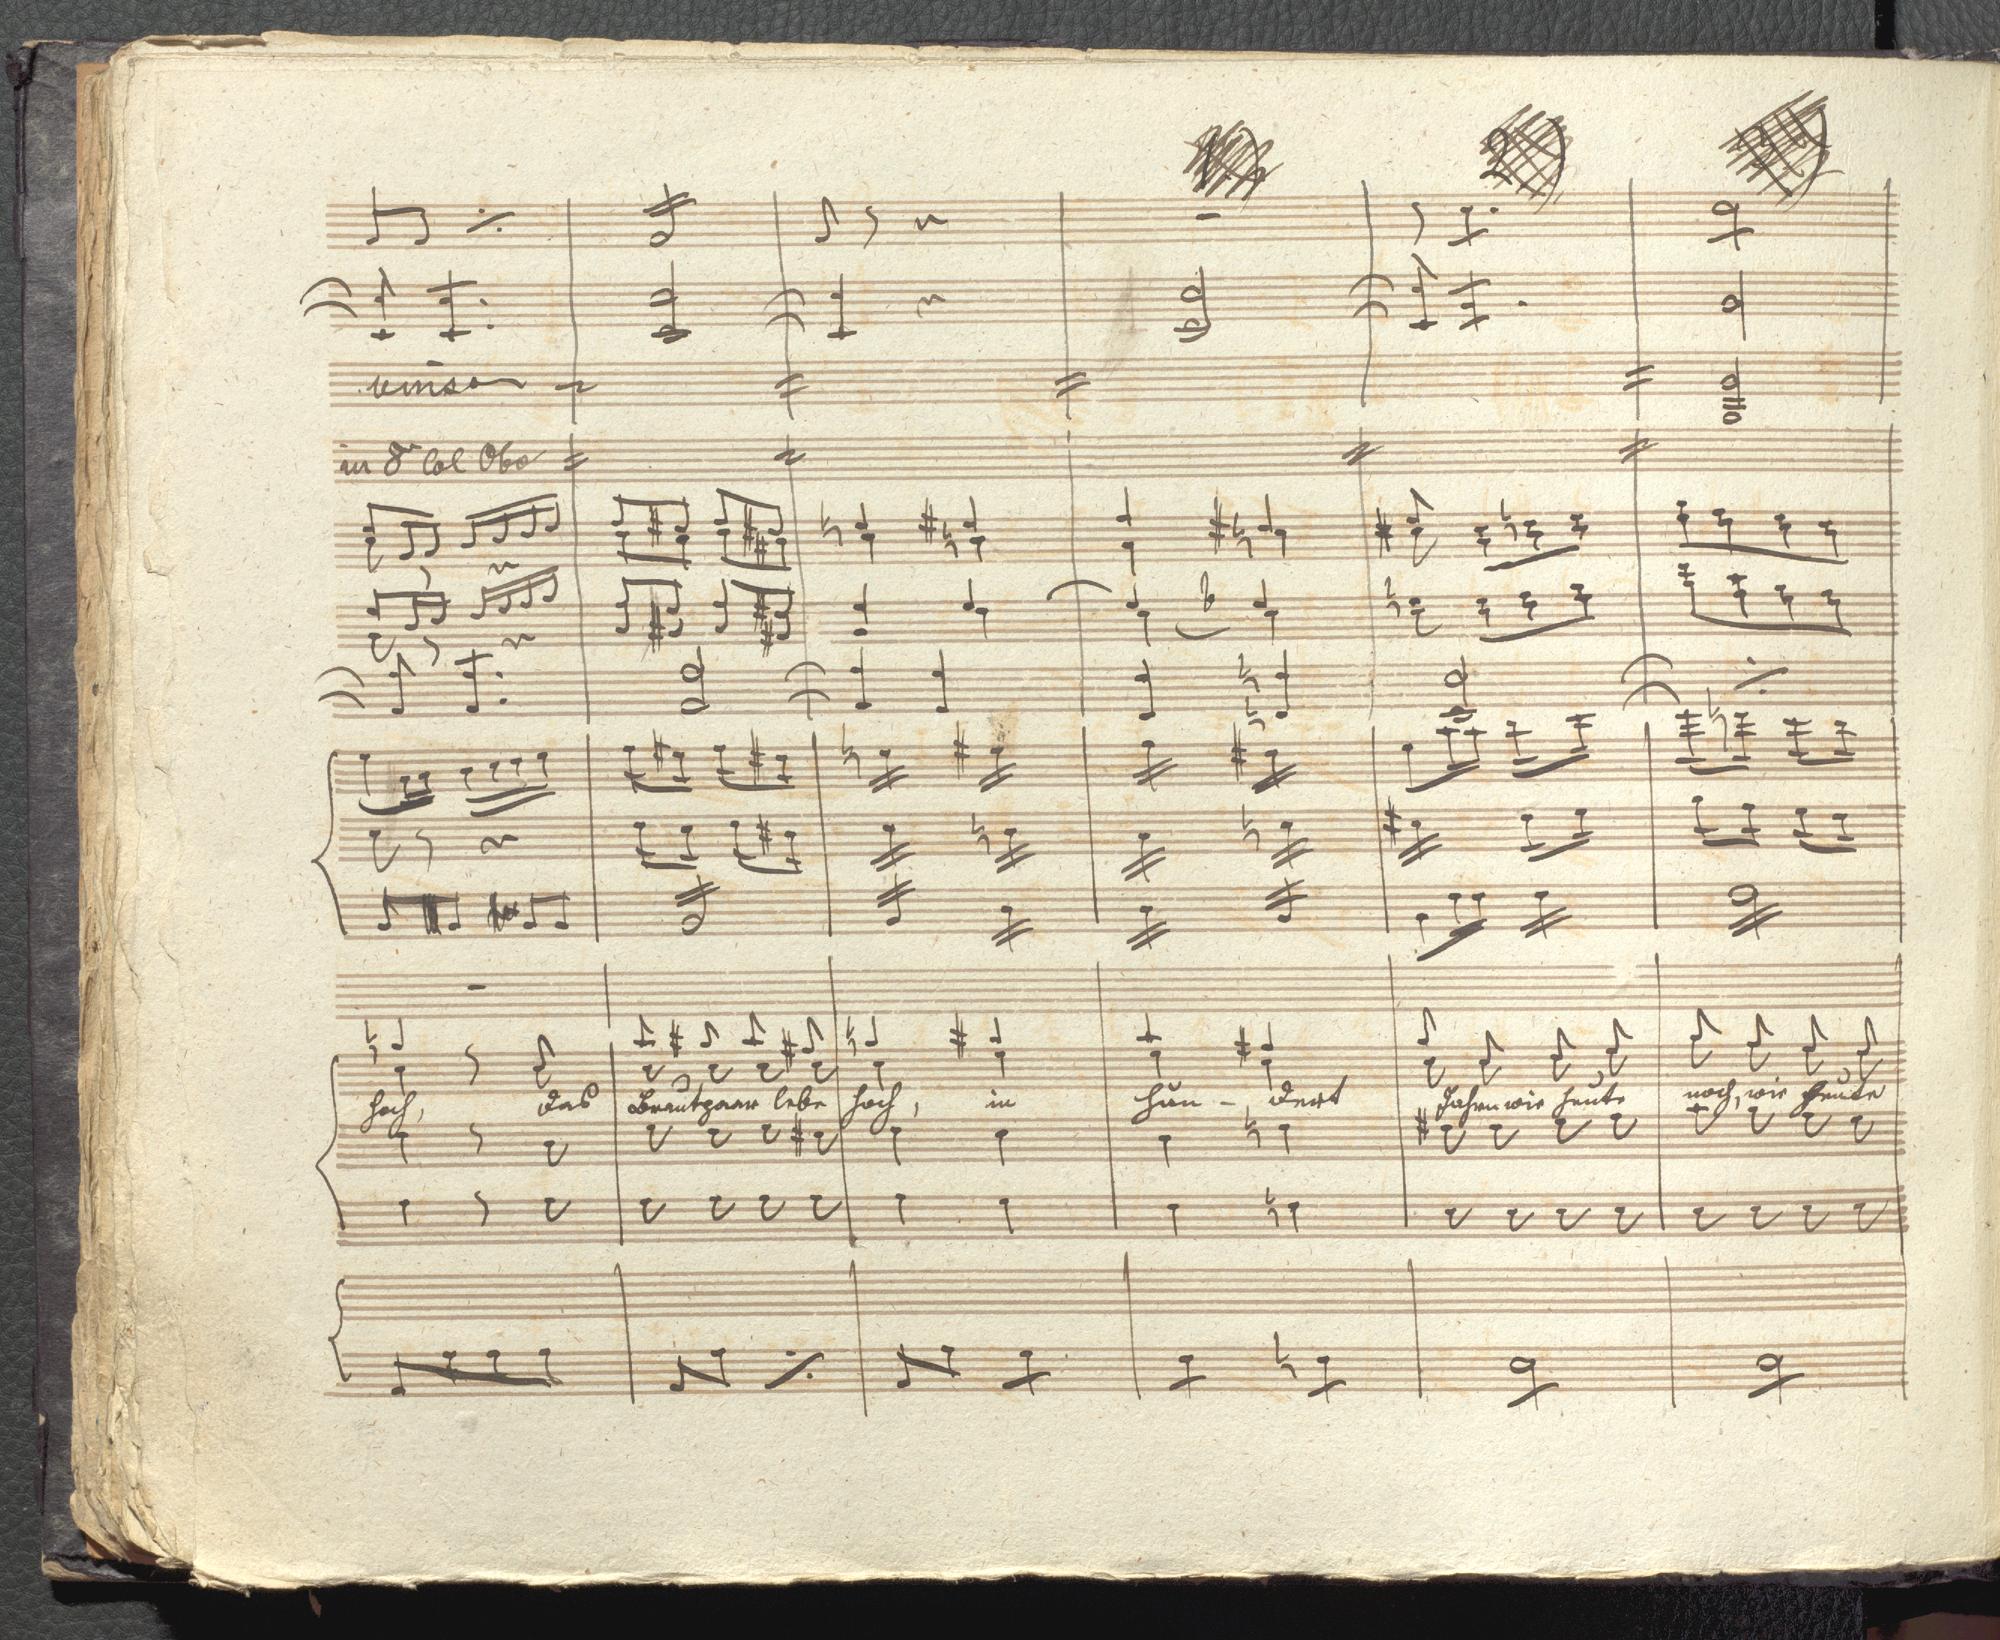 unison
in 8va Col Oboe
hoch, das Brautpaar lebe hoch, in hun - dert Jahren wie heute noch, wie heute